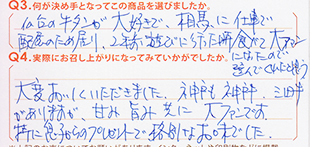 Q3.何が決め手となってこの商品を選びましたか。
仙台の牛タンが大好きで、相馬に仕事で
配属のため戻り、2年前遊びに行った時食べて大ファン
Q4.実際にお召し上がりになってみていかがでしたか。になったので
大変おいしくいただきました。神戸も神戸牛、三田牛
がありますが、甘み旨み共に大ファンです。
特に息子からのプレゼントで格別なお味でした。